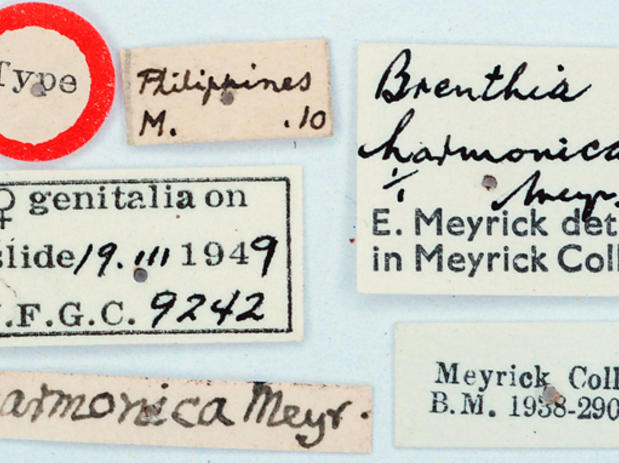 Type
Philippines
M. .10
Brenthia
harmonica
1/1 Meyr.
E. Meyrick det
in Meyrick Coll
♀ genitalia on
slide 19.III 1949
J.F.G.C. 9242
armonica Meyr.
Meyrick Coll
B.M. 1938-290